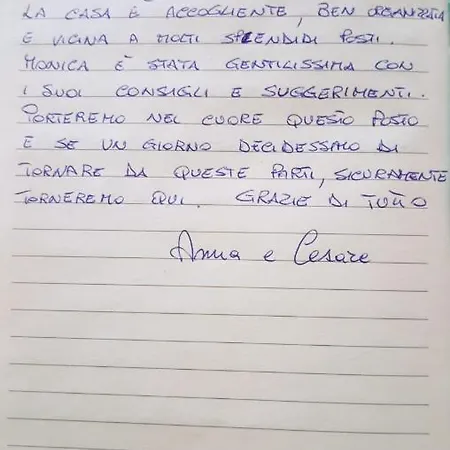 LA CASA È ACCOGLIENTE, BEN ORGANIZZATA
E VICINA A MOLTI SPLENDIDI POSTI.
MONICA È STATA GENTILISSIMA CON
I SUOI CONSIGLI E SUGGERIMENTI.
PORTEREMO NEL CUORE QUESTO POSTO
E SE UN GIORNO DECIDESSIMO DI
TORNARE DA QUESTE PARTI, SICURAMENTE
TORNEREMO QUI. GRAZIE DI TUTTO
Anna e Cesare